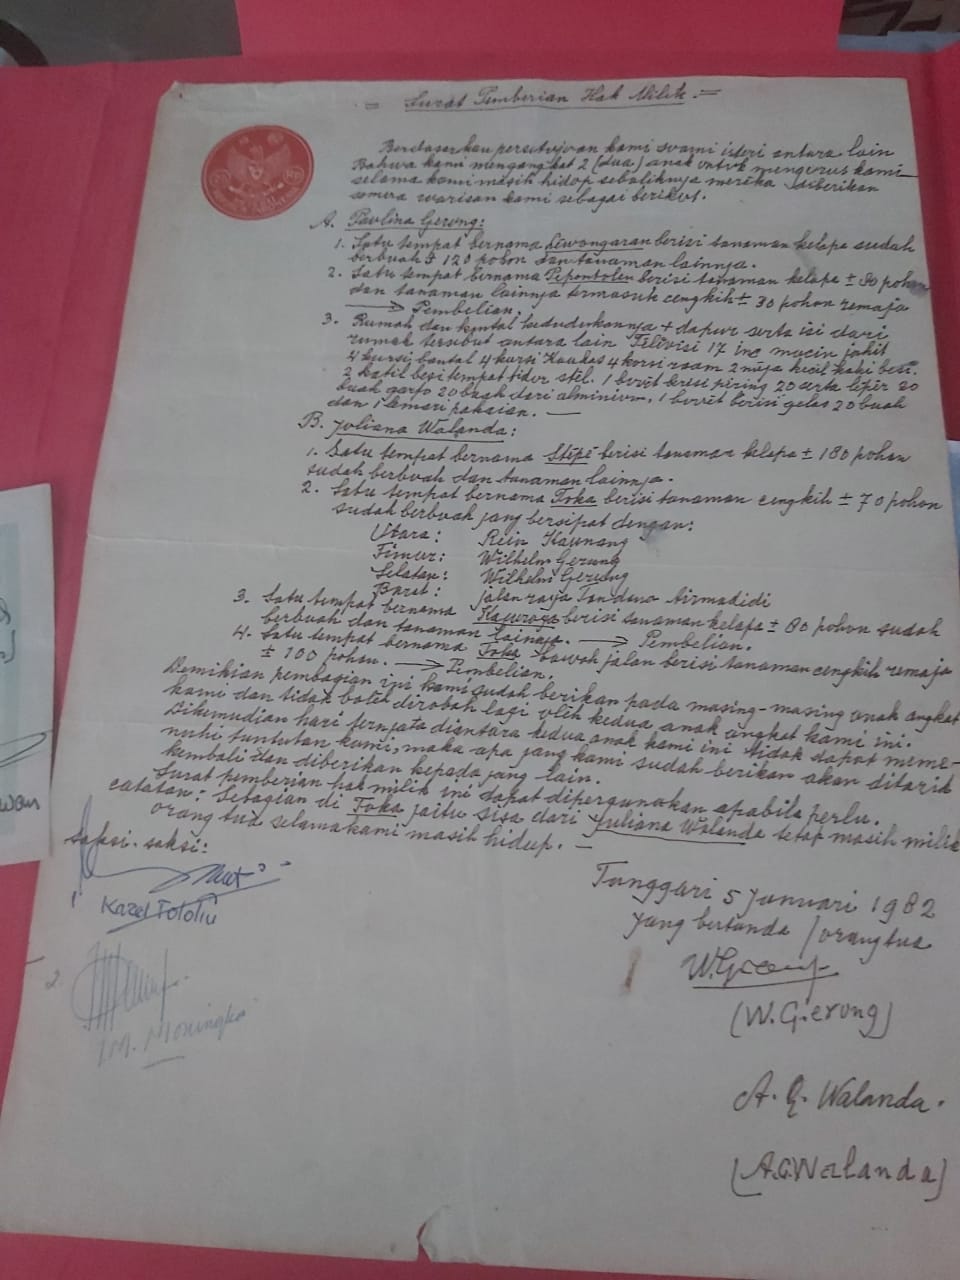 = Surat Pemberian Hak Milik. =
Berdasarkan persetujuan kami suami isteri antara lain
Bahwa kami mengangkat 2 (dua) anak untuk mengurus kami
selama kami masih hidup sebaliknya mereka diberikan
semua warisan kami sebagai berikut.
A. Paulina Gerung:
1. Satu tempat bernama Lewongaran berisi tanaman kelapa sudah
berbuah ± 120 pohon dan tanaman lainnya.
2. Satu tempat bernama Pepontolen berisi tanaman kelapa ± 90 pohon
dan tanaman lainnja termasuk cengkih ± 30 pohon remaja
→ Pembelian.
3. Rumah dan kintal kedudukannya + dapur serta isi dari
rumah tersebut antara lain Televisi 17 inc mecin jahit
4 kursi bantal 4 kursi 4 korsi roam 2 meja kecil kaki besi.
2 katil besi tempat tidor stel. 1 bevet berisi piring 20 serta leper 20
buah garfo 20 buah dari alminium, 1 bevet berisi gelas 20 buah
dan 1 lemari pakaian. —
B. Juliana Walanda:
1. Satu tempat bernama Stepi berisi tanaman kelapa ± 180 pohon
sudah berbuah dan tanaman lainnja.
2. Satu tempat bernama Toka berisi tanaman cengkih ± 70 pohon
sudah berbuah jang bersipat dengan:
Utara: Rein Kaunang
Timur: Wilhelm Gerung
Selatan: Wilhelm Gerung
Barat: jalan raya Tondano Airmadidi
3. Satu tempat bernama berisi tanaman kelapa ± 80 pohon sudah
berbuah dan tanaman lainnja. → Pembelian.
4. Satu tempat bernama Toka bawah jalan berisi tanaman cengkih remaja
± 100 pohon. → Pembelian.
Demikian pembagian ini kami sudah berikan pada masing-masing anak angkat
kami dan tidak boleh dirobah lagi oleh kedua anak angkat kami ini.
Dikemudian hari ternjata diantara kedua anak kami ini tidak dapat meme-
nuhi tuntutan kami, maka apa jang kami sudah berikan akan ditarik
kembali dan diberikan kepada jang lain.
Surat pemberian hak milik ini dapat dipergunakan apabila perlu.
catatan: Sebagian di Toka jaitu sisa dari Juliana Walanda tetap masih milik
orang tua selama kami masih hidup. —
Saksi-saksi:
Karel Tololiu
2.
M. Moningka
Tanggari 5 Januari 1982
Yang bertanda / orangtua
W. Gerung
(W. Gerung)
A. G. Walanda.
(A.G. Walanda)